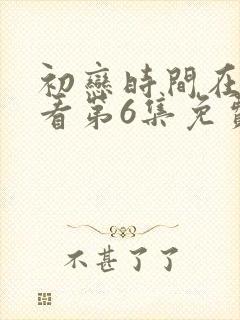 初戀時間在
看第6集免
不甚了了